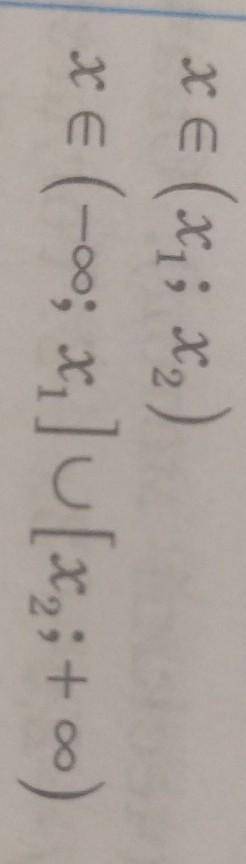 x ∈ (x₁; x₂)
x ∈ (−∞; x₁] ∪ [x₂; +∞)